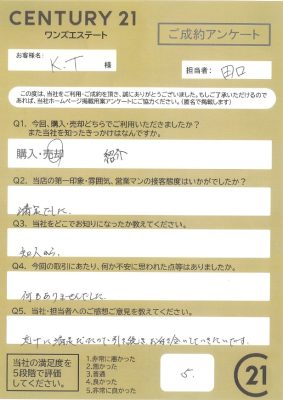 CENTURY 21
ワンズエステート
ご成約アンケート
お客様名:
K.T 様
担当者: 田口
この度は、当社をご利用・ご成約を頂き、誠にありがとうございました。もしご了承いただけるのであれば、当社ホームページ掲載用業アンケートにご協力ください。(匿名で掲載します)
Q1. 今回、購入・売却どちらでご利用いただきましたか?
また当社を知ったきっかけはなんですか。
購入・売却 紹介
Q2. 当店の第一印象・雰囲気、営業マンの接客態度はいかがでしたか?
満足でした。
Q3. 当社をどこでお知りになったか教えてください。
知人から。
Q4. 今回の取引にあたり、何か不安に思われた点等はありましたか。
何もありませんでした。
Q5. 当社・担当者へのご感想ご意見を教えてください。
非常に満足だったので、引き続きお付き合いしていきたいです。
当社の満足度を
5段階で評価
してください。
1.非常に悪かった
2.悪かった
3.普通
4.良かった
5.非常に良かった
5.
C21